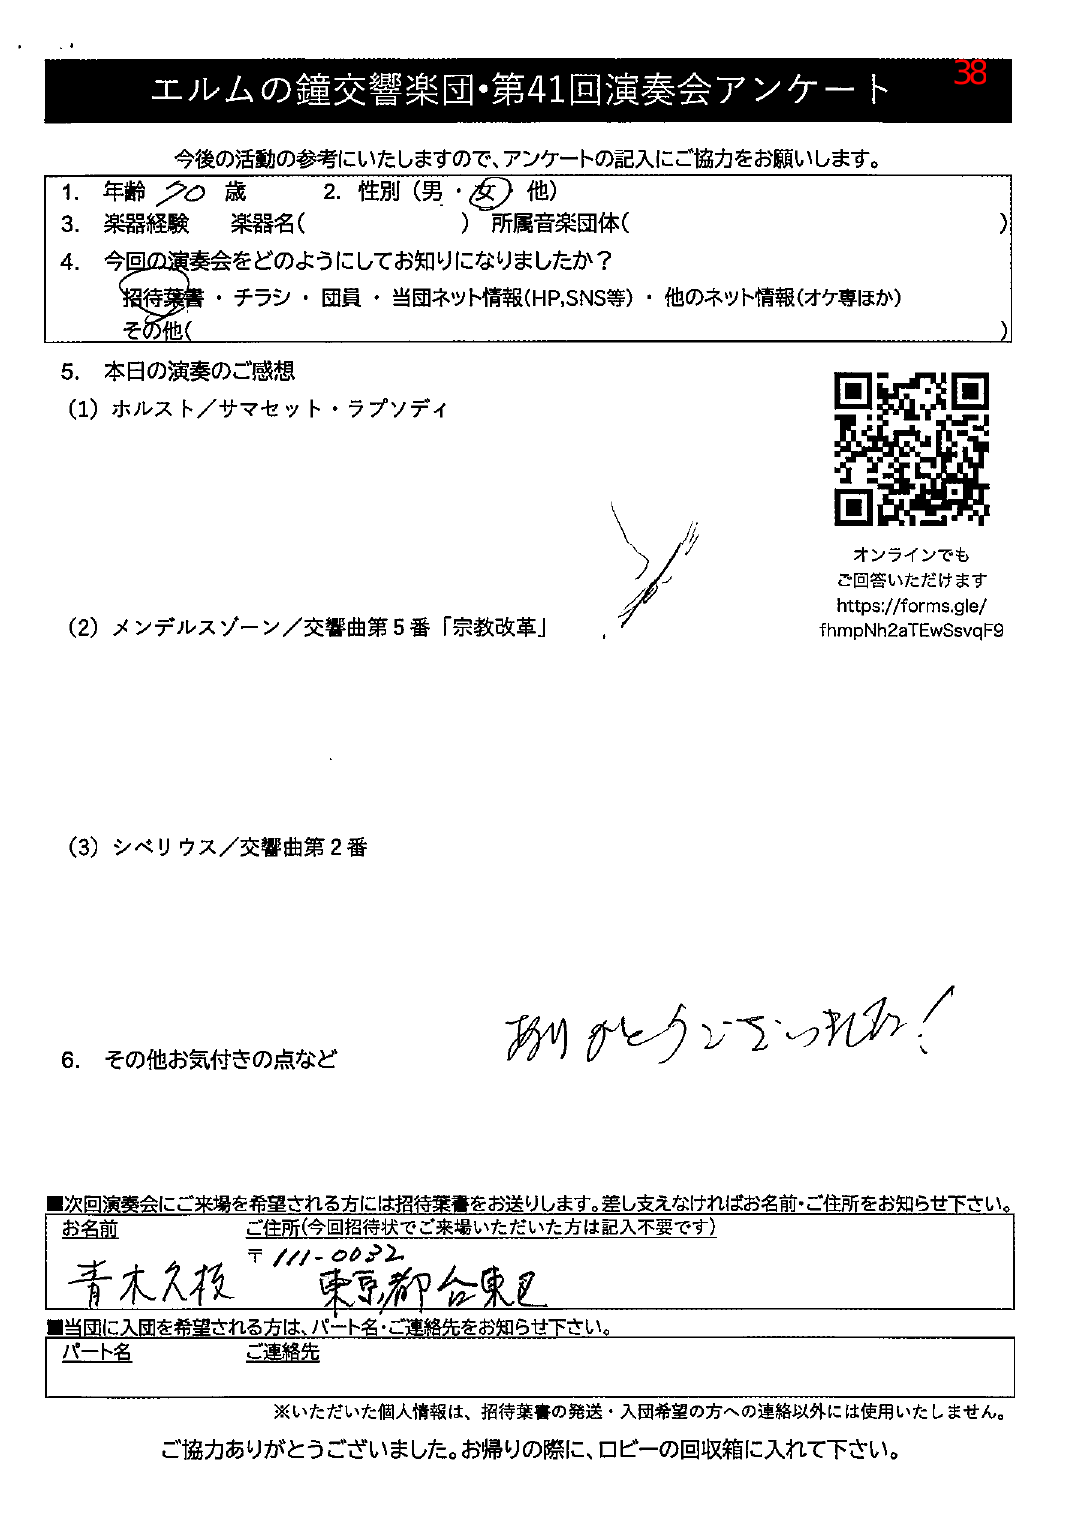 38
エルムの鐘交響楽団・第41回演奏会アンケート
今後の活動の参考にいたしますので、アンケートの記入にご協力をお願いします。
1. 年齢 70 歳 2. 性別（男・女・他）
3. 楽器経験 楽器名( ) 所属音楽団体( )
4. 今回の演奏会をどのようにしてお知りになりましたか？
招待葉書・チラシ・団員・当団ネット情報(HP,SNS等)・他のネット情報(オケ専ほか)
その他( )
5. 本日の演奏のご感想
(1) ホルスト／サマセット・ラプソディ
オンラインでも
ご回答いただけます
https://forms.gle/
fhmpNh2aTEwSsvqF9
(2) メンデルスゾーン／交響曲第５番「宗教改革」
(3) シベリウス／交響曲第２番
ありがとうございました！
6. その他お気付きの点など
■次回演奏会にご来場を希望される方には招待葉書をお送りします。差し支えなければお名前・ご住所をお知らせ下さい。
お名前 ご住所(今回招待状でご来場いただいた方は記入不要です)
〒111-0032
青木久枝 東京都台東区
■当団に入団を希望される方は、パート名・ご連絡先をお知らせ下さい。
パート名 ご連絡先
※いただいた個人情報は、招待葉書の発送・入団希望の方への連絡以外には使用いたしません。
ご協力ありがとうございました。お帰りの際に、ロビーの回収箱に入れて下さい。